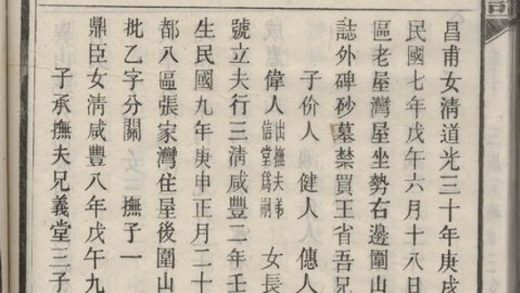 昌甫女清道光三十年庚戌
民國七年戊午六月十八日
區老屋灣屋坐勢右邊圍山
誌外碑砂墓禁買王省吾兄
子价人 健人 傳人
偉人出撫夫弟信堂爲嗣 女長
號立夫行三清咸豐二年壬
生民國九年庚申正月二十
都八區張家灣住屋後圍山
批乙字分關 撫子一
鼎臣女清咸豐八年戊午九
子承撫夫兄義堂三子